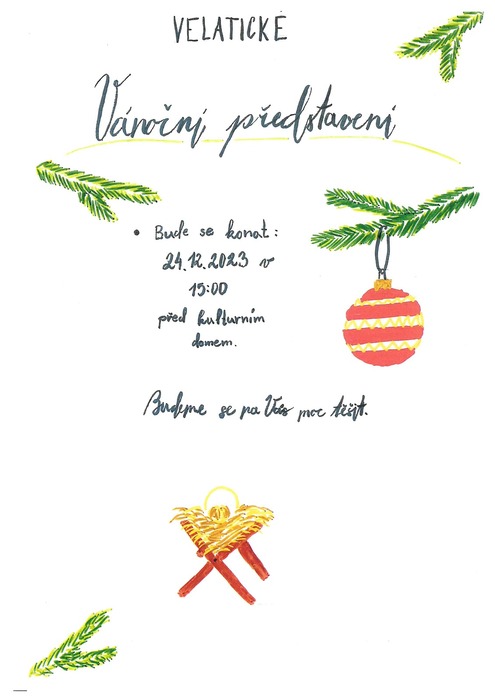 VELATICKÉ
Vánoční představení
• Bude se konat:
24.12.2023 v
15:00
před kulturním
domem.
Budeme se na Vás moc těšit.